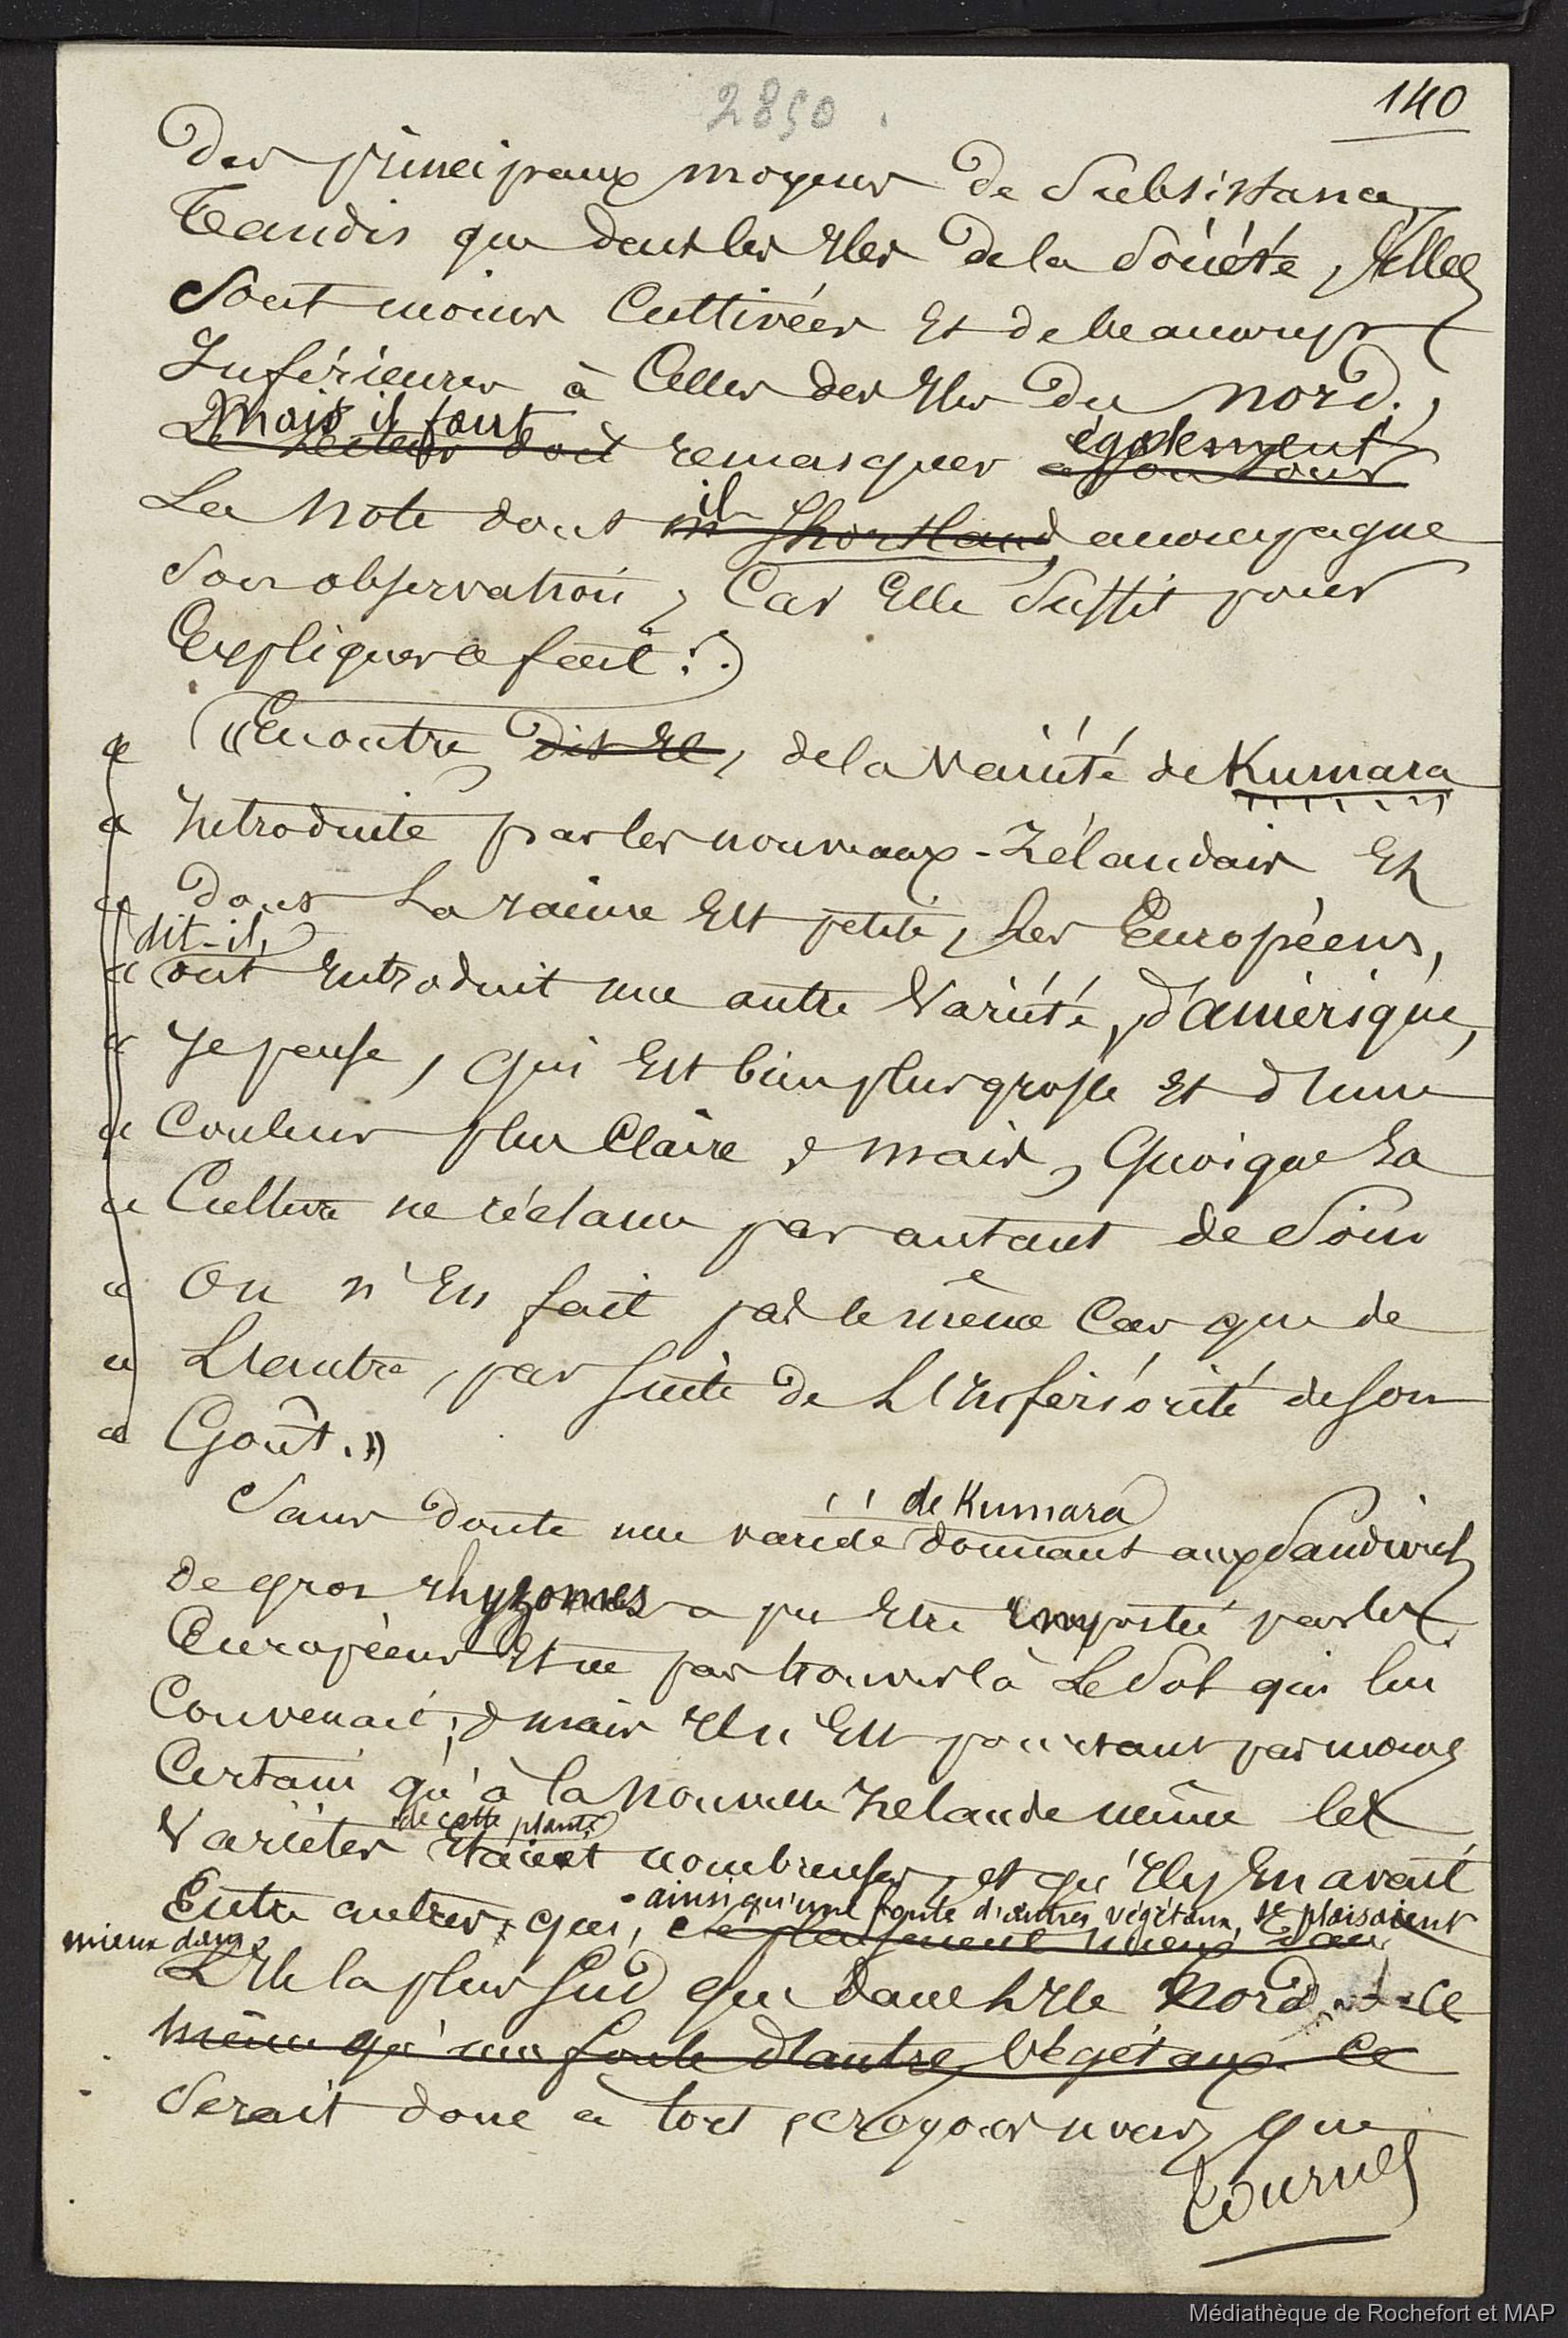 2890.
140
des principaux moyens de subsistance
Tandis que dans les Iles de la Société, Elles
sont moins Cultivées Et de beaucoup
Inférieures à Celles des Iles du nord.,
mais il faut également
Le Lecteur doit remarquer à son tour
il
La Note dont mr Shortland accompagne
son observation, Car Elle Suffit pour
Expliquer ce fait:
« (« En outre, dit Il, de la variété de Kumara
« Introduite par les nouveaux-Zélandais Et
« dont La racine Est petite, les Européens,
dit-il,
« ont Introduit une autre Variété, d'amérique,
« Je pense, qui Est bien plus grosse Et d'une
« Couleur plus Claire, mais, Quoique sa
« Culture ne réclame pas autant de Soin
« On n'En fait pas le même Cas que de
« L'autre, par suite de L'Infériorité de son
« Goût.»
de Kumara
Sans doute une variété donnant aux Sandwich
de gros rhyzomes a pu Etre Importée par les
Européens Et ne pas trouver là Le Sol qui lui
Convenait; mais Il n'Est pourtant pas moins
Certain qu'à la Nouvelle Zelande même les
de cette plante
Variétés Etaient nombreuses, et qu'Il y En avait
ainsi qu'une foule d'autres végétaux, se plaisaient
Entre autres, qui, se plaisaient mieux dans
mieux dans
L'Ile la plus Sud que dans L'Ile Nord. de Ce
même qu'une foule d'autres Végétaux. Ce
Serait donc à tort, croyons nous, que
tournez
Médiathèque de Rochefort et MAP